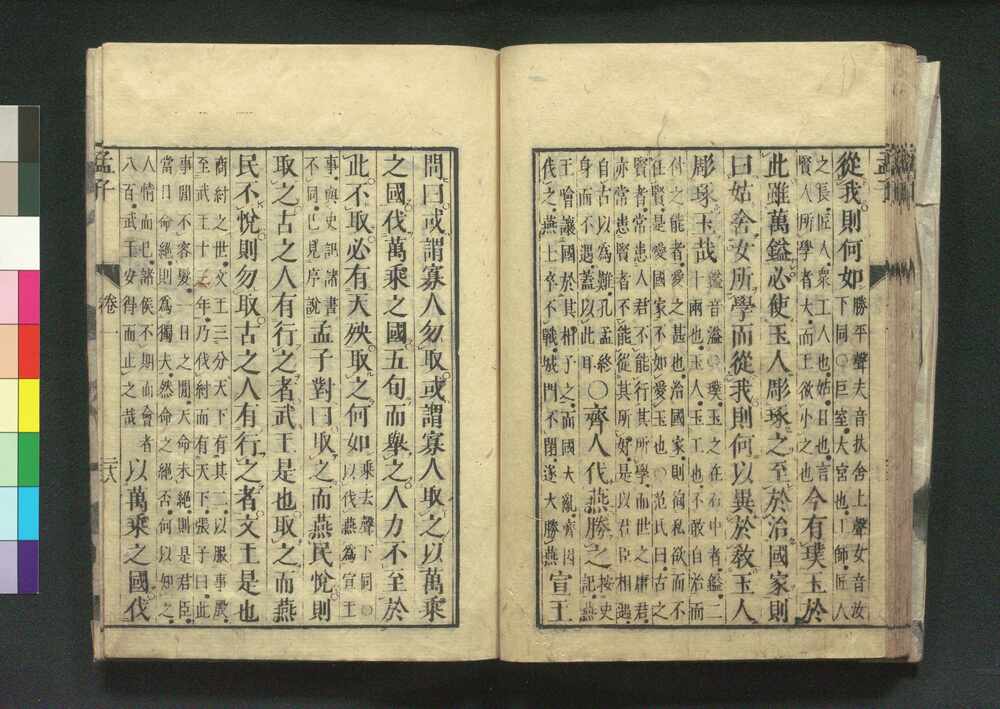 孟子
從我則何如
勝平聲夫音扶舍上聲女音汝
下同○巨室大宮也工師匠人
之長匠人眾工人也姑且也言
賢人所學者大而王欲小之也
今有璞玉於
此雖萬鎰必使玉人彫琢之至於治國家則
曰姑舍女所學而從我則何以異於教玉人
彫琢玉哉
鎰音溢○璞玉之在石中者鎰二
十兩也玉人玉工也不敢自治而
付之能者愛之甚也治國家則徇私欲而不
任賢是愛國家不如愛玉也○范氏曰古之
賢者常患人君不能行其所學而世之庸君
亦常患賢者不能從其所好是以君臣相遇
自古以為難孔孟終
身而不遇蓋以此耳
○齊人伐燕勝之
按史
記燕
王噲讓國於其相子之而國大亂齊因
伐之燕士卒不戰城門不閉遂大勝燕
宣王
問曰或謂寡人勿取或謂寡人取之以萬乘
之國伐萬乘之國五旬而舉之人力不至於
此不取必有天殃取之何如
乘去聲下同○
以伐燕為宣王
事與史記諸書
不同已見序說
孟子對曰取之而燕民悅則
取之古之人有行之者武王是也取之而燕
民不悅則勿取古之人有行之者文王是也
商紂之世文王三分天下有其二以服事殷
至武王十三年乃伐紂而有天下張子曰此
事閒不容髮一日之閒天命未絕則是君臣
當日命絕則為獨夫然命之絕否何以知之
人情而已諸侯不期而會者
八百武王安得而止之哉
以萬乘之國伐
孟子
卷一
二六